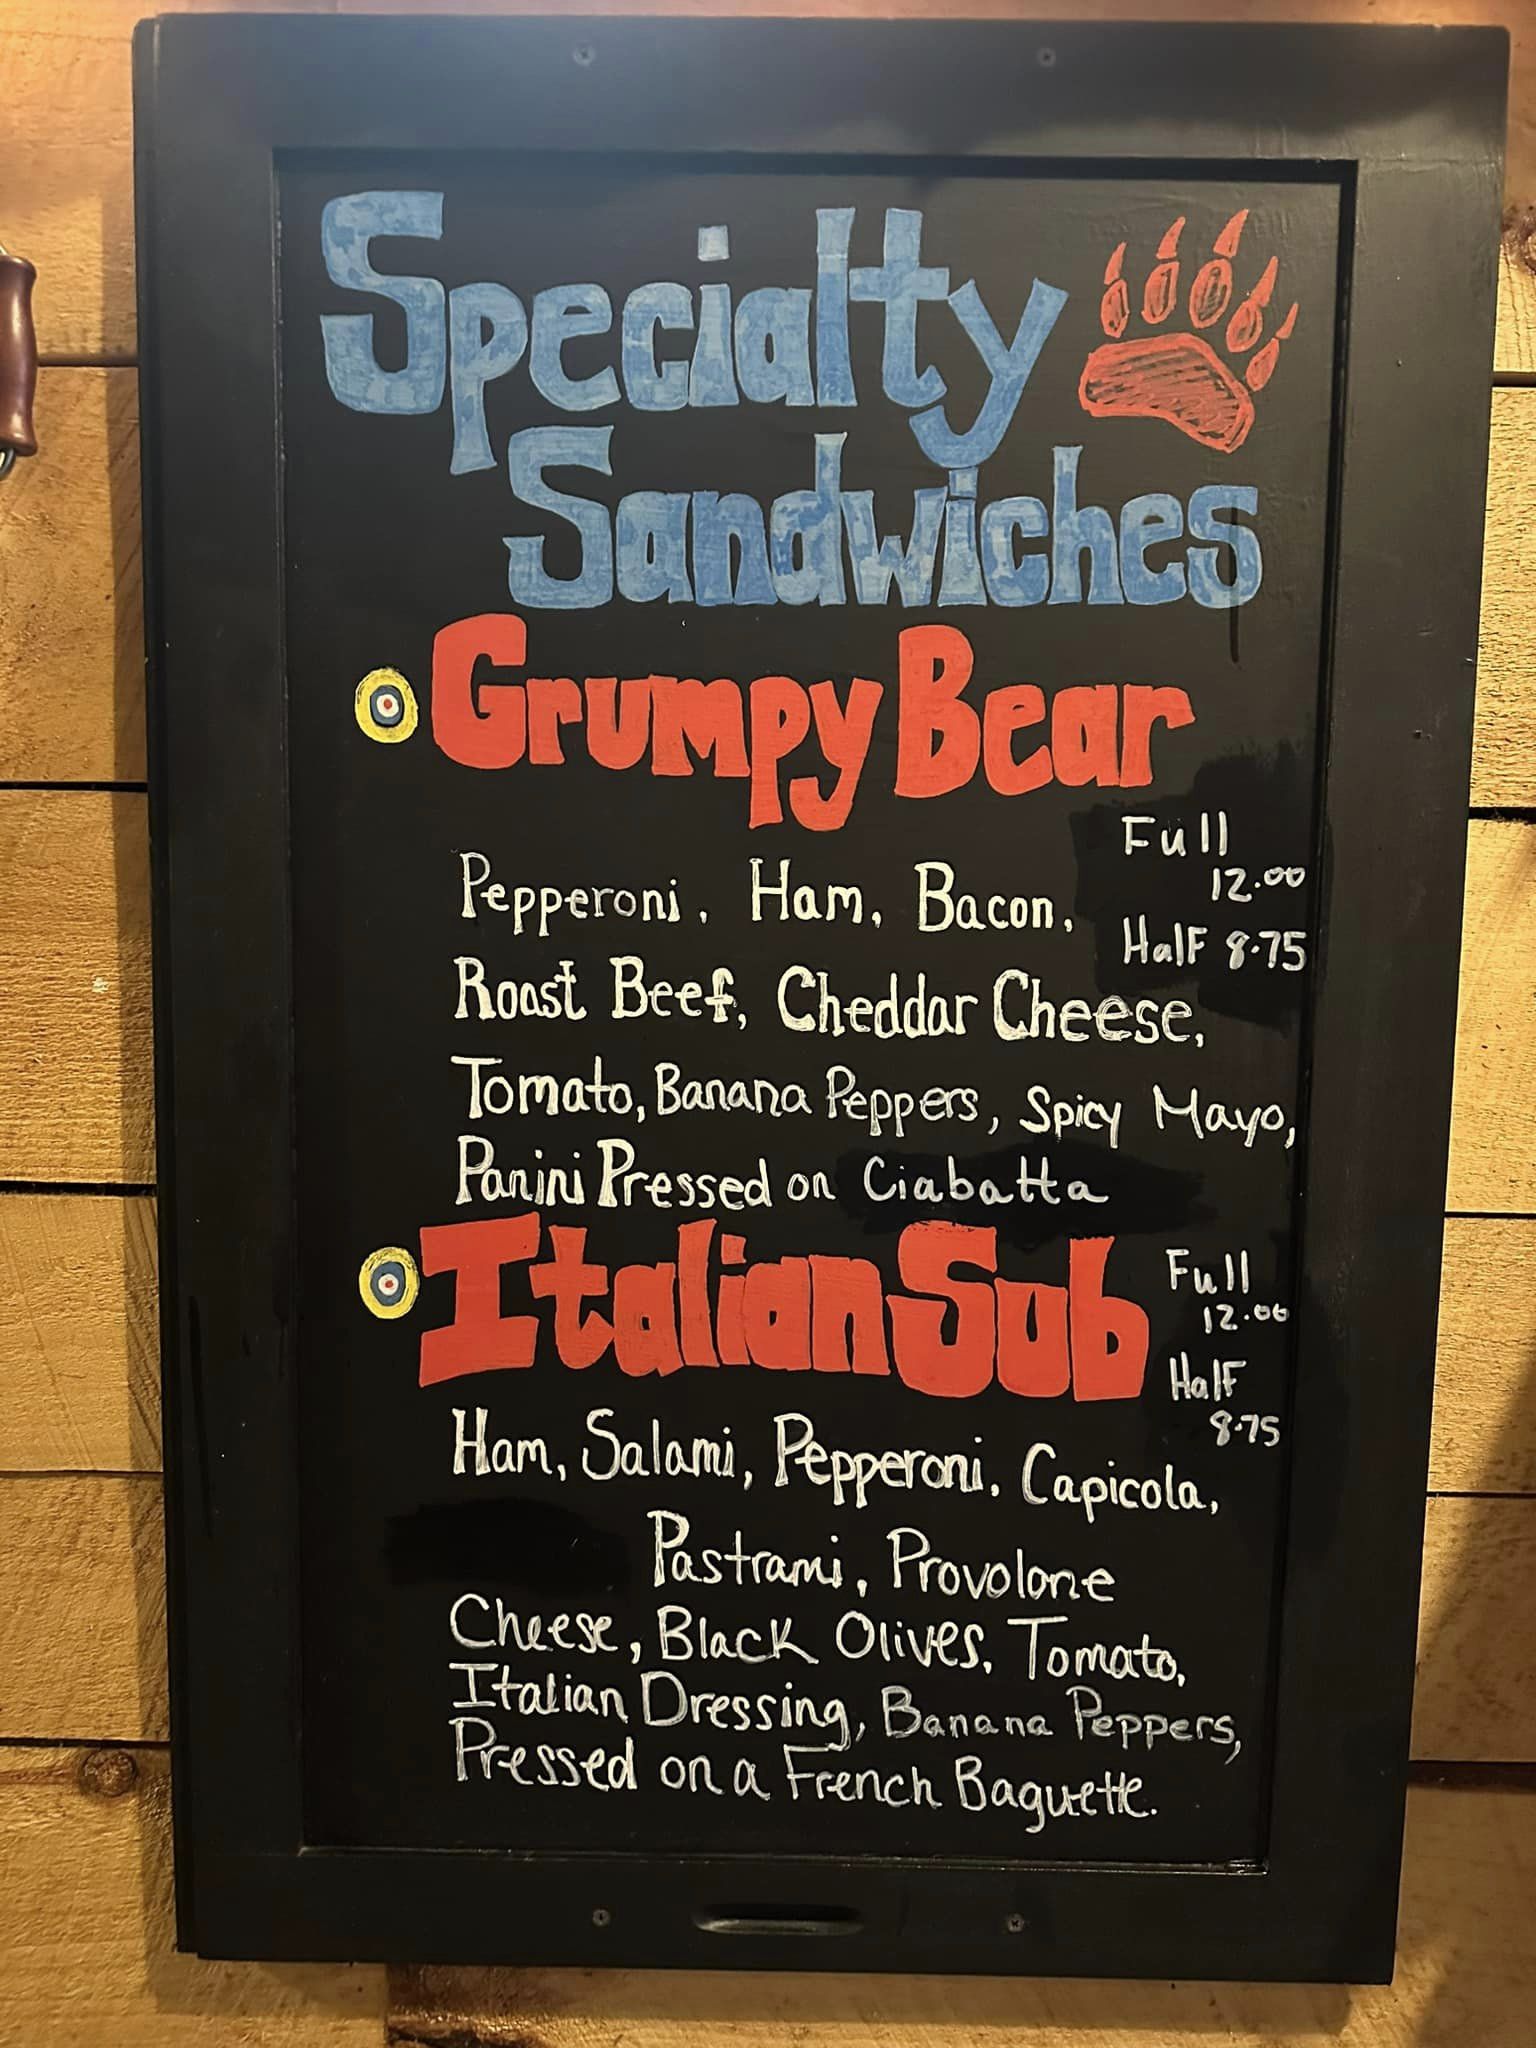 Specialty
Sandwiches
Grumpy Bear
Full
12.00
Pepperoni, Ham, Bacon,
Half 8.75
Roast Beef, Cheddar Cheese,
Tomato, Banana Peppers, Spicy Mayo,
Panini Pressed on Ciabatta
Italian Sub
Full
12.00
Half
8.75
Ham, Salami, Pepperoni, Capicola,
Pastrami, Provolone
Cheese, Black Olives, Tomato,
Italian Dressing, Banana Peppers,
Pressed on a French Baguette.